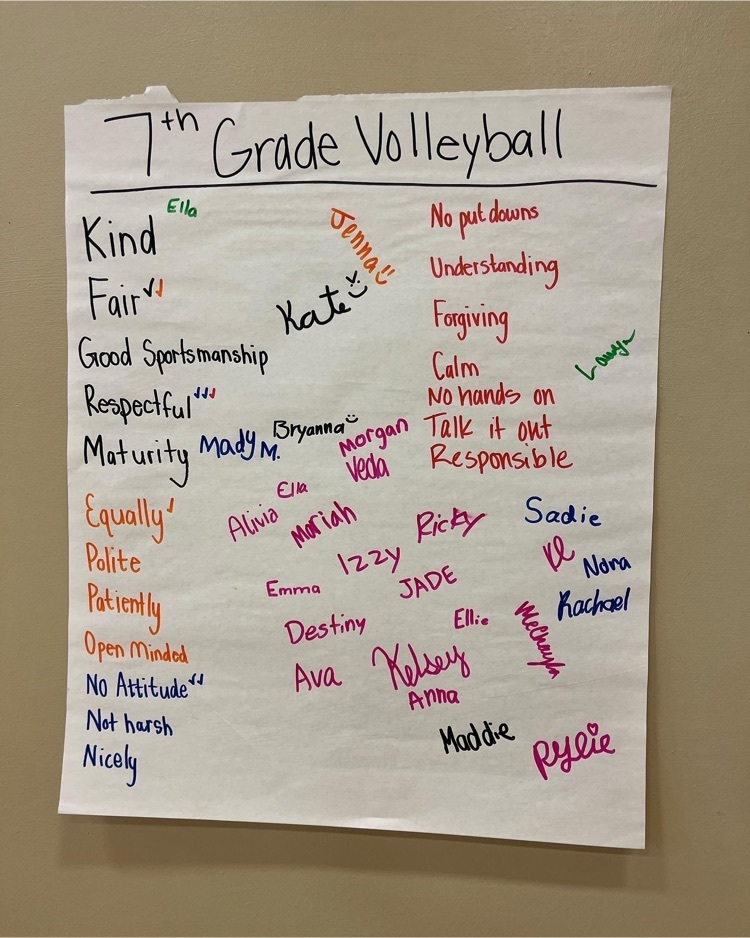 7th Grade Volleyball
Ella
Kind
Fair
Good Sportsmanship
Respectful
Maturity
Equally
Polite
Patiently
Open Minded
No Attitude
Not harsh
Nicely
Jenna
Kate
Mady M.
Bryanna
Morgan
Veda
Ella
Alivia
Mariah
Ricky
Izzy
Emma
JADE
Destiny
Ellie
Ava
Kelsey
Anna
Maddie
Rylie
No put downs
Understanding
Forgiving
Calm
No hands on
Talk it out
Responsible
Sadie
Nora
Rachael